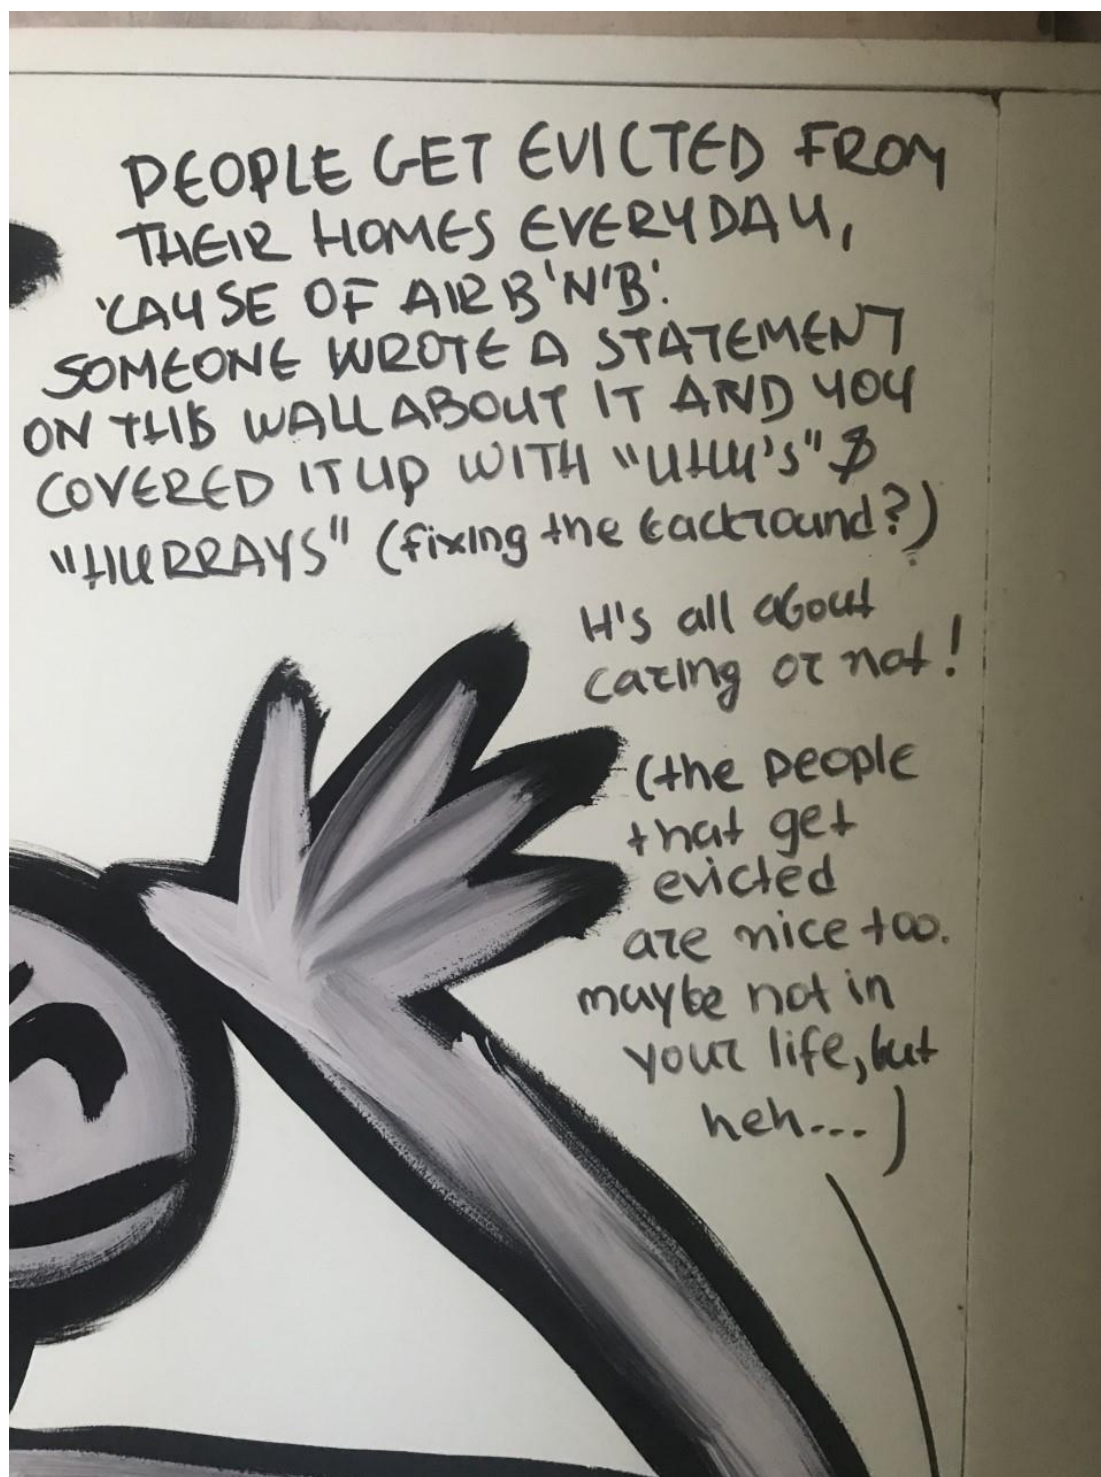 PEOPLE GET EVICTED FROM
THEIR HOMES EVERYDAY,
'CAUSE OF AIRB'N'B'.
SOMEONE WROTE A STATEMENT
ON THIS WALL ABOUT IT AND YOU
COVERED IT UP WITH "UHU's" &
"HURRAYS" (fixing the backround?)
It's all about
caring or not!
(the people
that get
evicted
are nice too.
maybe not in
your life, but
heh...)